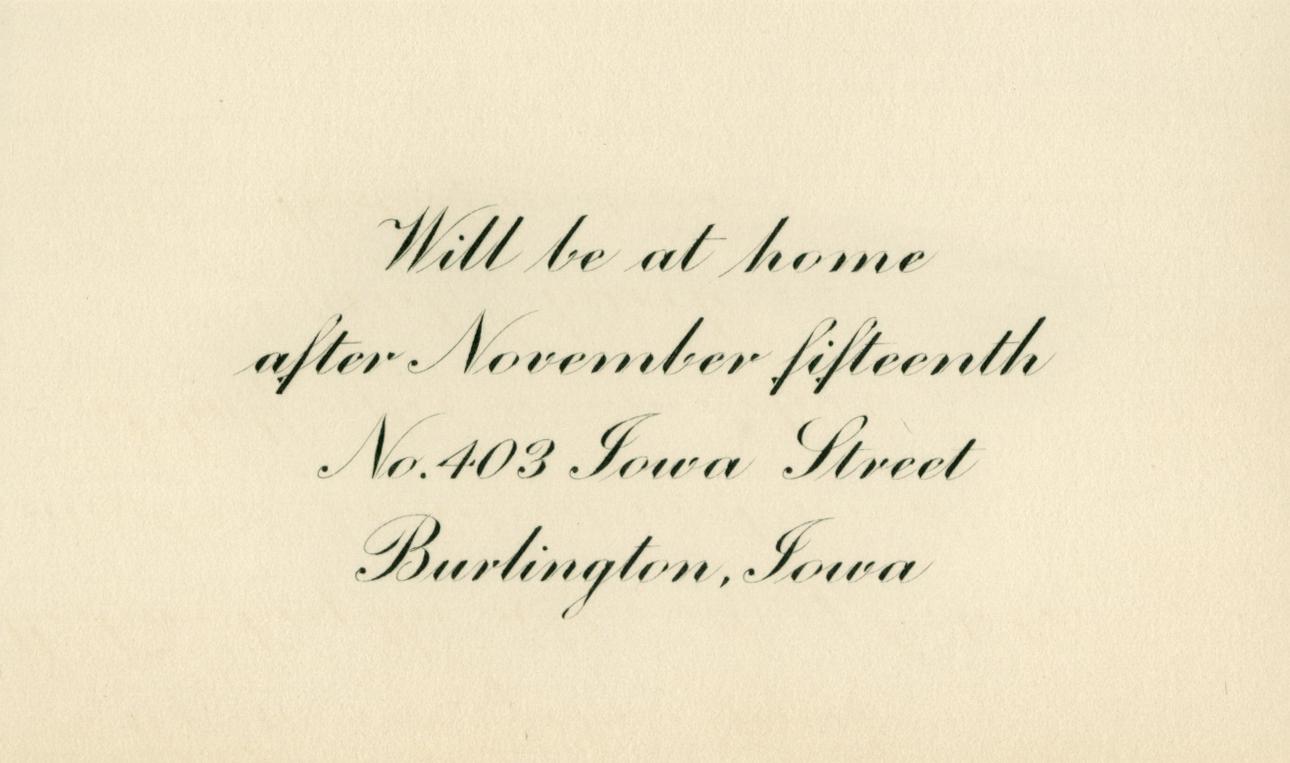 Will be at home
after November fifteenth
No. 403 Iowa Street
Burlington, Iowa